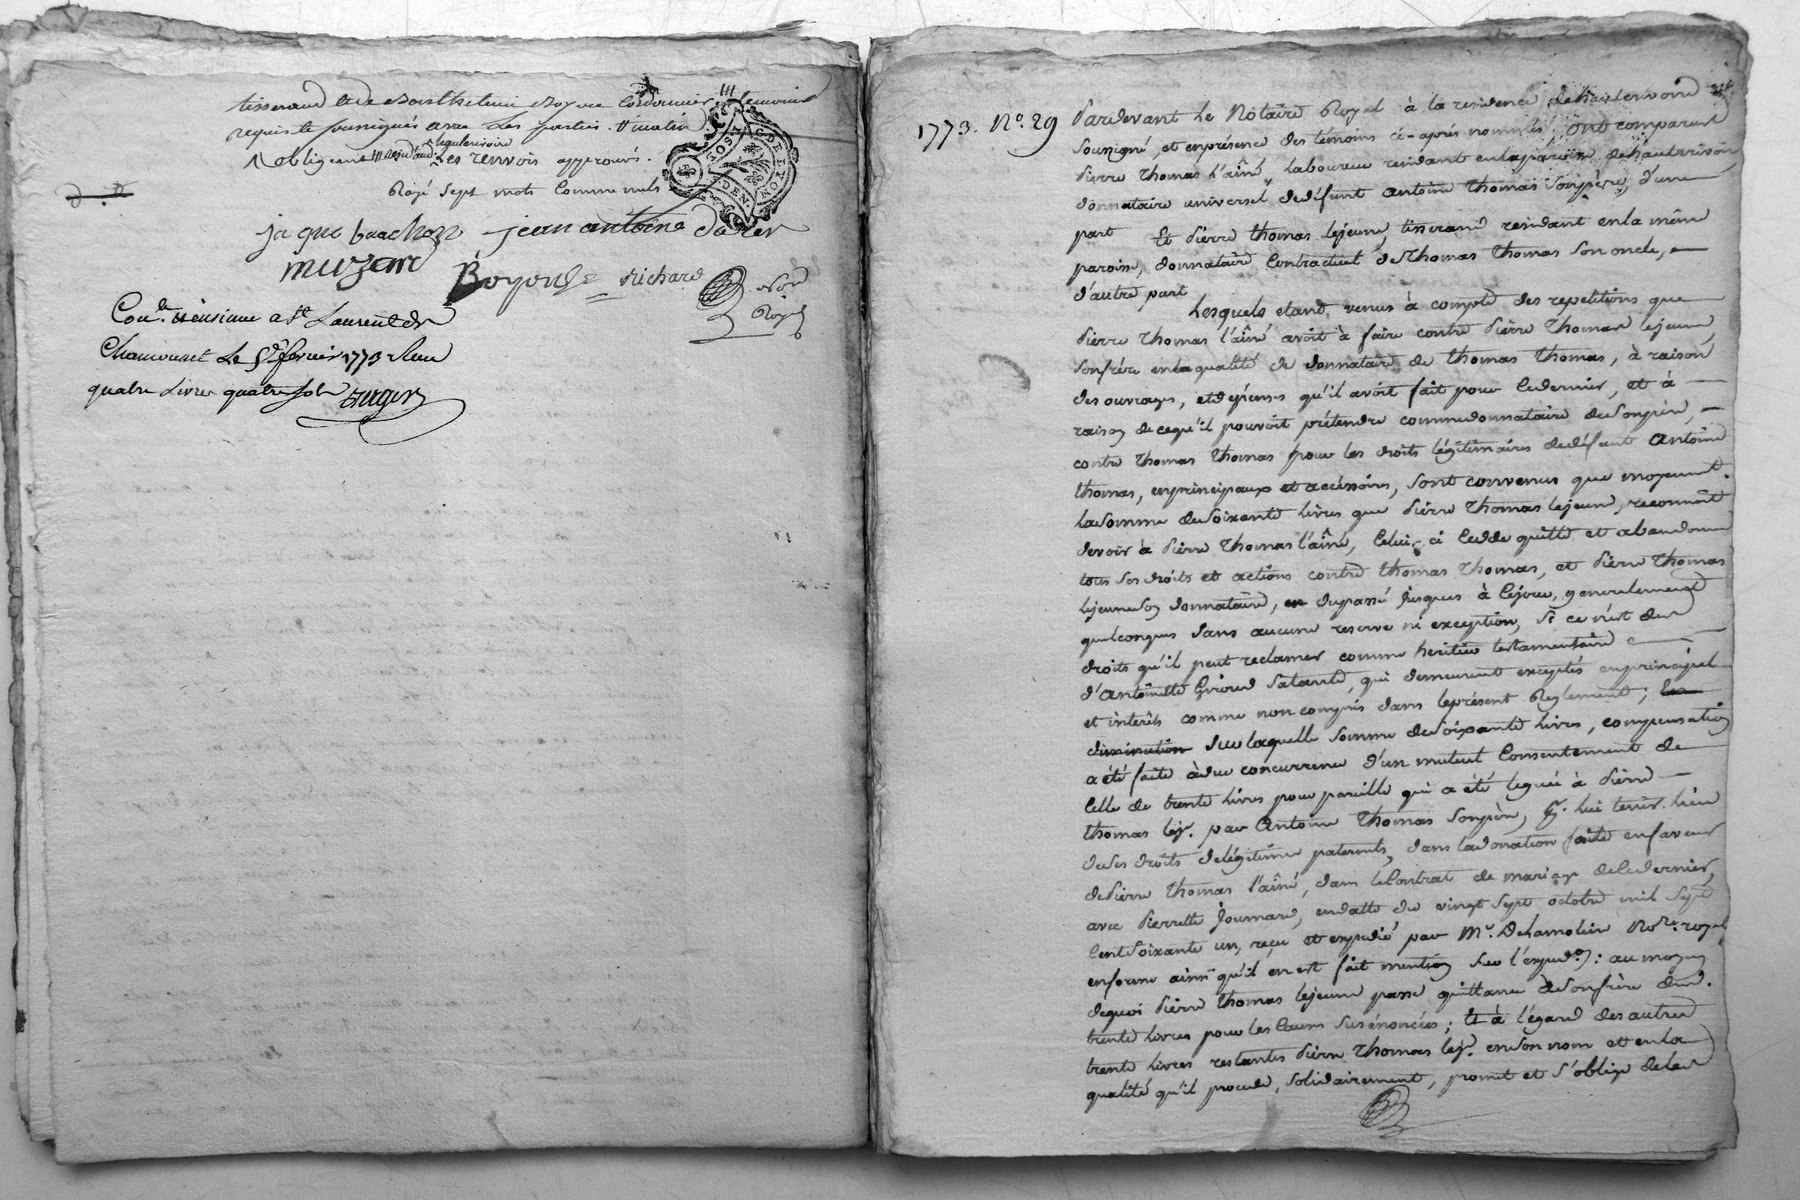 tisserand et de Barthelemi Boyou Cordonnier temoins
requis te soussignés avec les parties.
obligeant les renvois approuvés.
Rayé sept mots comme nuls
GÉN. DE LYON
jaque bauchon jean antoine
muzard Boyou Richard
Not.
Roy.
Con.lé et insinué a St Laurent de
Chamousset le 5e fevrier 1773 Reçu
quatre livres quatre sols
1773. No. 29
Pardevant Le Notaire Royal à la residence de hauterivoire
soussigné, et en présence des témoins ci-après nommés, ont comparu
Pierre Thomas l'aîné, Laboureur residant en la paroisse de hauterivoire
donnataire universel de défunt antoine Thomas son père, d'une
part Et Pierre Thomas lejeune, tisserand residant en la même
paroisse, donnataire Contractuel de Thomas Thomas son oncle,
d'autre part
Lesquels etant venus à compte des repetitions que
Pierre Thomas l'aîné avoit à faire contre Pierre Thomas lejeune,
son frère en la qualité de donnataire de Thomas Thomas, à raison
des ouvrages, et dépenses qu'il avoit fait pour ce dernier, et à
raison de ce qu'il pouvoit prétendre comme donnataire de son père,
contre Thomas Thomas pour les droits légitimaires de défunt antoine
thomas, en principaux et accéssoires, sont convenus que moyenant
la somme de soixante livres que Pierre Thomas lejeune, reconnoît
devoir à Pierre Thomas l'aîné, Celui-ci cedde quitte et abandonne
tous ses droits et actions contre Thomas Thomas, et Pierre Thomas
lejeune son donnataire, du passé jusques à Cejour, generalement
quelconques sans aucune reserve ni exception, si ce n'est des
droits qu'il peut reclamer comme heritier testamentaire
d'antoinette Giroud sa tante, qui demeurent exceptés en principal
et intérêts comme non compris dans le présent Reglement;
sur laquelle somme de soixante livres, compensation
a été faite à due concurrence d'un mutuel Consentement de
Celle de trente livres pour pareille qui a été leguée à Pierre
thomas lej. par Antoine Thomas son père, pr. lui tenir lieu
de ses droits de légitime paternels, dans la donation faite en faveur
de Pierre Thomas l'aîné, dans le Contrat de mariage de ce dernier,
avec Pierrette Joumard, en datte du vingt sept octobre mil sept
Cent soixante un, reçu et expedié par Me. Delamolin No.re royal
en forme ainsi qu'il en est fait mention sur l'exped.on: au moyen
de quoi Pierre Thomas lejeune passe quittance à son frère des d.
trente livres pour les Causes susénoncées; Et à l'égard des autres
trente livres restantes Pierre Thomas lej. en son nom et en la
qualité qu'il procede, solidairement, promet et s'oblige de les